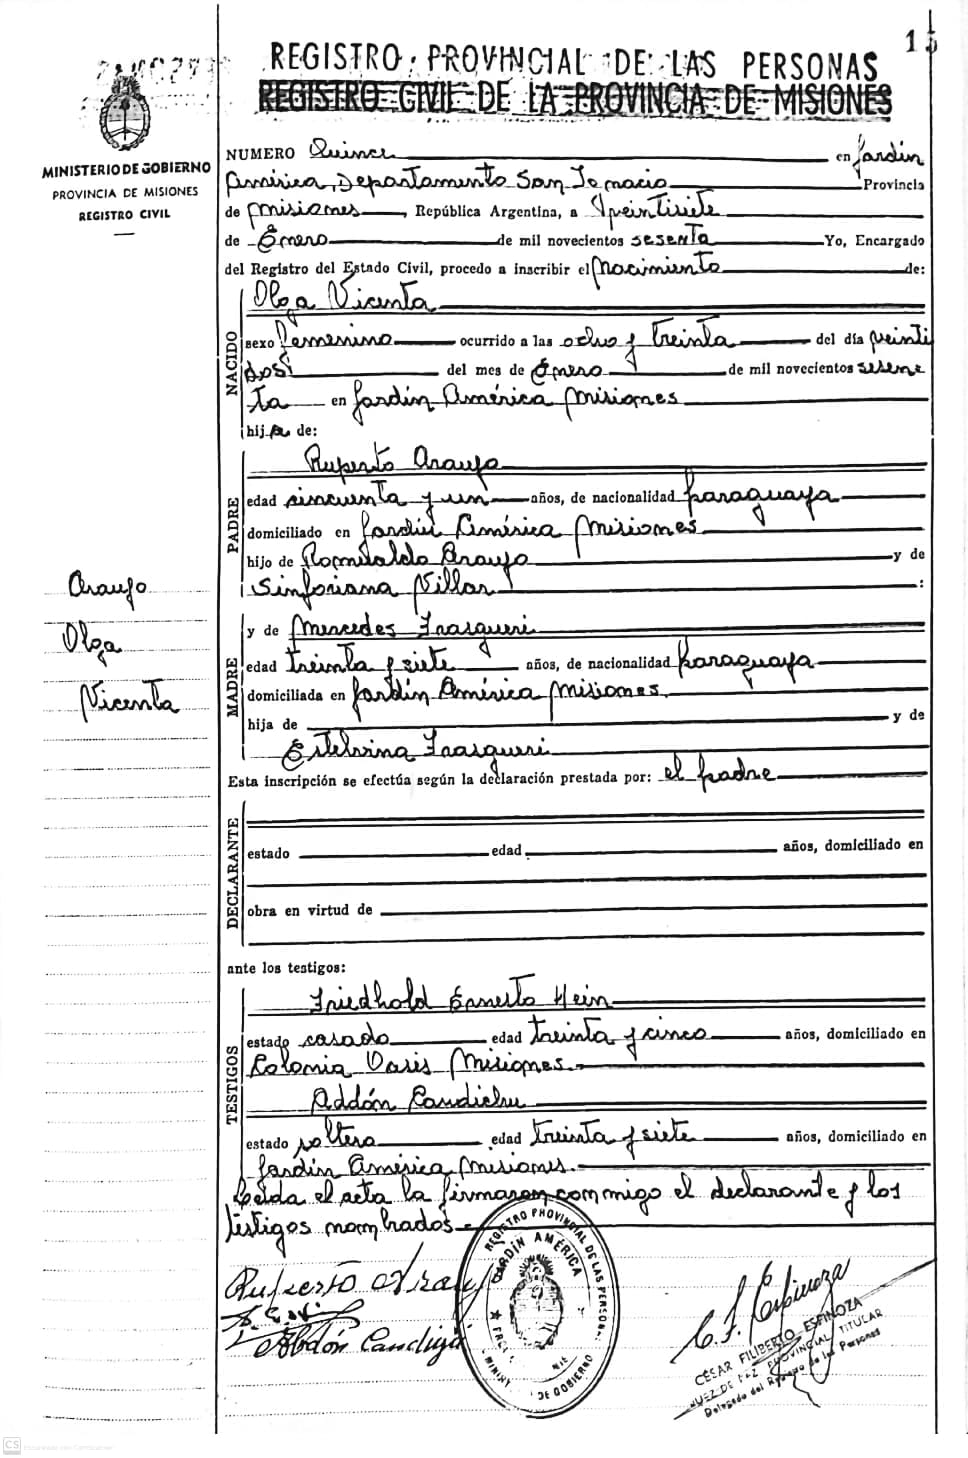 15
REGISTRO PROVINCIAL DE LAS PERSONAS
REGISTRO CIVIL DE LA PROVINCIA DE MISIONES
MINISTERIO DE GOBIERNO
PROVINCIA DE MISIONES
REGISTRO CIVIL
NUMERO Quince en Jardín
América, Departamento San Ignacio Provincia
de Misiones, República Argentina, a Veintisiete
de Enero de mil novecientos sesenta Yo, Encargado
del Registro del Estado Civil, procedo a inscribir el Nacimiento de:
NACIDO
Olga Vicenta
sexo Femenino ocurrido a las ocho y treinta del día veinti
dós del mes de Enero de mil novecientos sesen
ta en Jardín América Misiones
hija de:
PADRE
Ruperto Araujo
edad sincuenta y un años, de nacionalidad Paraguaya
domiciliado en Jardín América Misiones
hijo de Romualdo Araujo y de
Sinforiana Villar :
Araujo
Olga
Vicenta
MADRE
y de Mercedes Irasqueri
edad treinta y siete años, de nacionalidad Paraguaya
domiciliada en Jardín América Misiones.
hija de y de
Estelvina Irasqueri
Esta inscripción se efectúa según la declaración prestada por: el padre
DECLARANTE
estado edad años, domiciliado en
obra en virtud de
ante los testigos:
TESTIGOS
Friedhold Ernesto Hein
estado casado edad treinta y cinco años, domiciliado en
Colonia Oasis Misiones.
Addón
estado soltero edad treinta y siete años, domiciliado en
Jardín América Misiones.
Leída el acta la firmaron conmigo el declarante y los
testigos nombrados
Ruperto Araujo
Abdón
REGISTRO PROVINCIAL DE LAS PERSONAS
JARDÍN AMÉRICA
DE GOBIERNO
C. F. Espinoza
CÉSAR FILIBERTO ESPINOZA
JUEZ DE PAZ PROVINCIAL TITULAR
Delegado del Registro de las Personas
CS